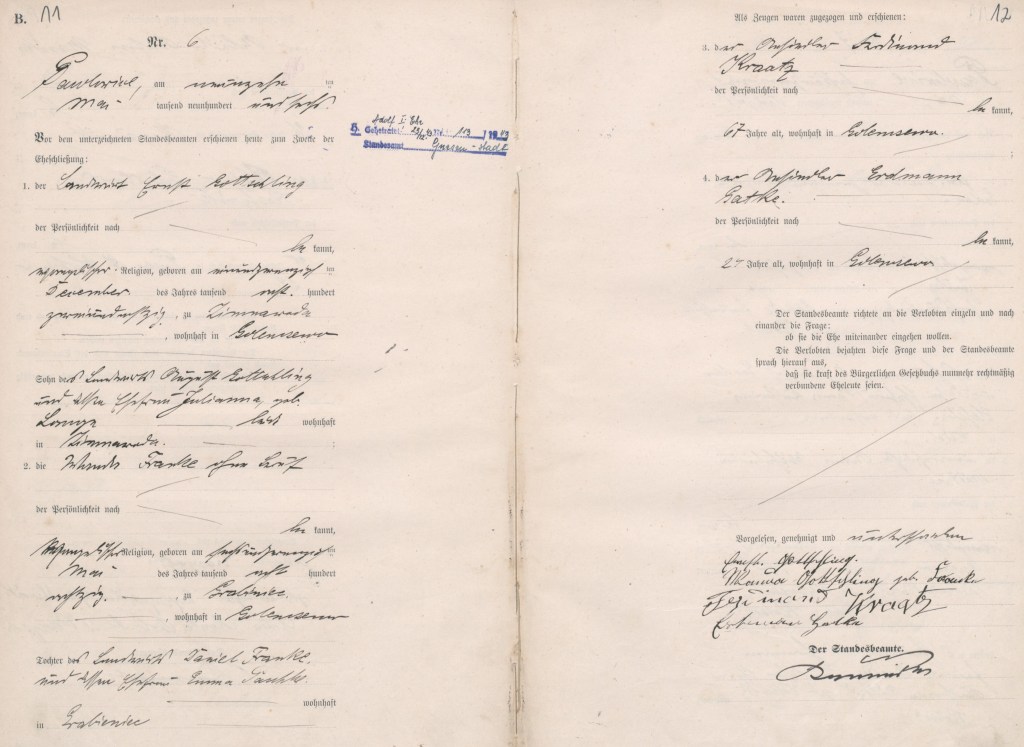 B. 11
Nr. 6
am neunzehn ten
Mai tausend neunhundert und sechs
Vor dem unterzeichneten Standesbeamten erschienen heute zum Zwecke der
Eheschließung:
1. der Landwirt Ernst Gottschling
der Persönlichkeit nach
be kannt,
evangelischer Religion, geboren am einundzwanzigsten
Dezember des Jahres tausend acht hundert
zweiundachtzig zu
, wohnhaft in Golemsewo
Sohn des Landwirts August Gottschling
und dessen Ehefrau Julianna, geb.
Lange wohnhaft
in
2. die Wanda Franke ohne Beruf
der Persönlichkeit nach
be kannt,
evangelischer Religion, geboren am sechsundzwanzigsten
Mai des Jahres tausend acht hundert
achtzig zu Grabieniec
, wohnhaft in Golemsewo
Tochter des Landwirts Daniel Franke
und dessen Ehefrau Emma
wohnhaft
in Grabieniec
Adolf I. Ehe
H. Geheiratet 113 1943
Standesamt Gnesen-Stadt
12
Als Zeugen waren zugezogen und erschienen:
3. der Ansiedler Ferdinand
Kraatz
der Persönlichkeit nach
be kannt,
67 Jahre alt, wohnhaft in Golemsewo.
4. der Ansiedler Erdmann
Gatke.
der Persönlichkeit nach
be kannt,
Jahre alt, wohnhaft in Golemsewo
Der Standesbeamte richtete an die Verlobten einzeln und nach
einander die Frage:
ob sie die Ehe miteinander eingehen wollen.
Die Verlobten bejahten diese Frage und der Standesbeamte
sprach hierauf aus,
daß sie kraft des Bürgerlichen Gesetzbuchs nunmehr rechtmäßig
verbundene Eheleute seien.
Vorgelesen, genehmigt und unterschrieben
Ernst Gottschling.
Wanda Gottschling geb. Franke
Ferdinand Kraatz
Erdmann Gatke
Der Standesbeamte.